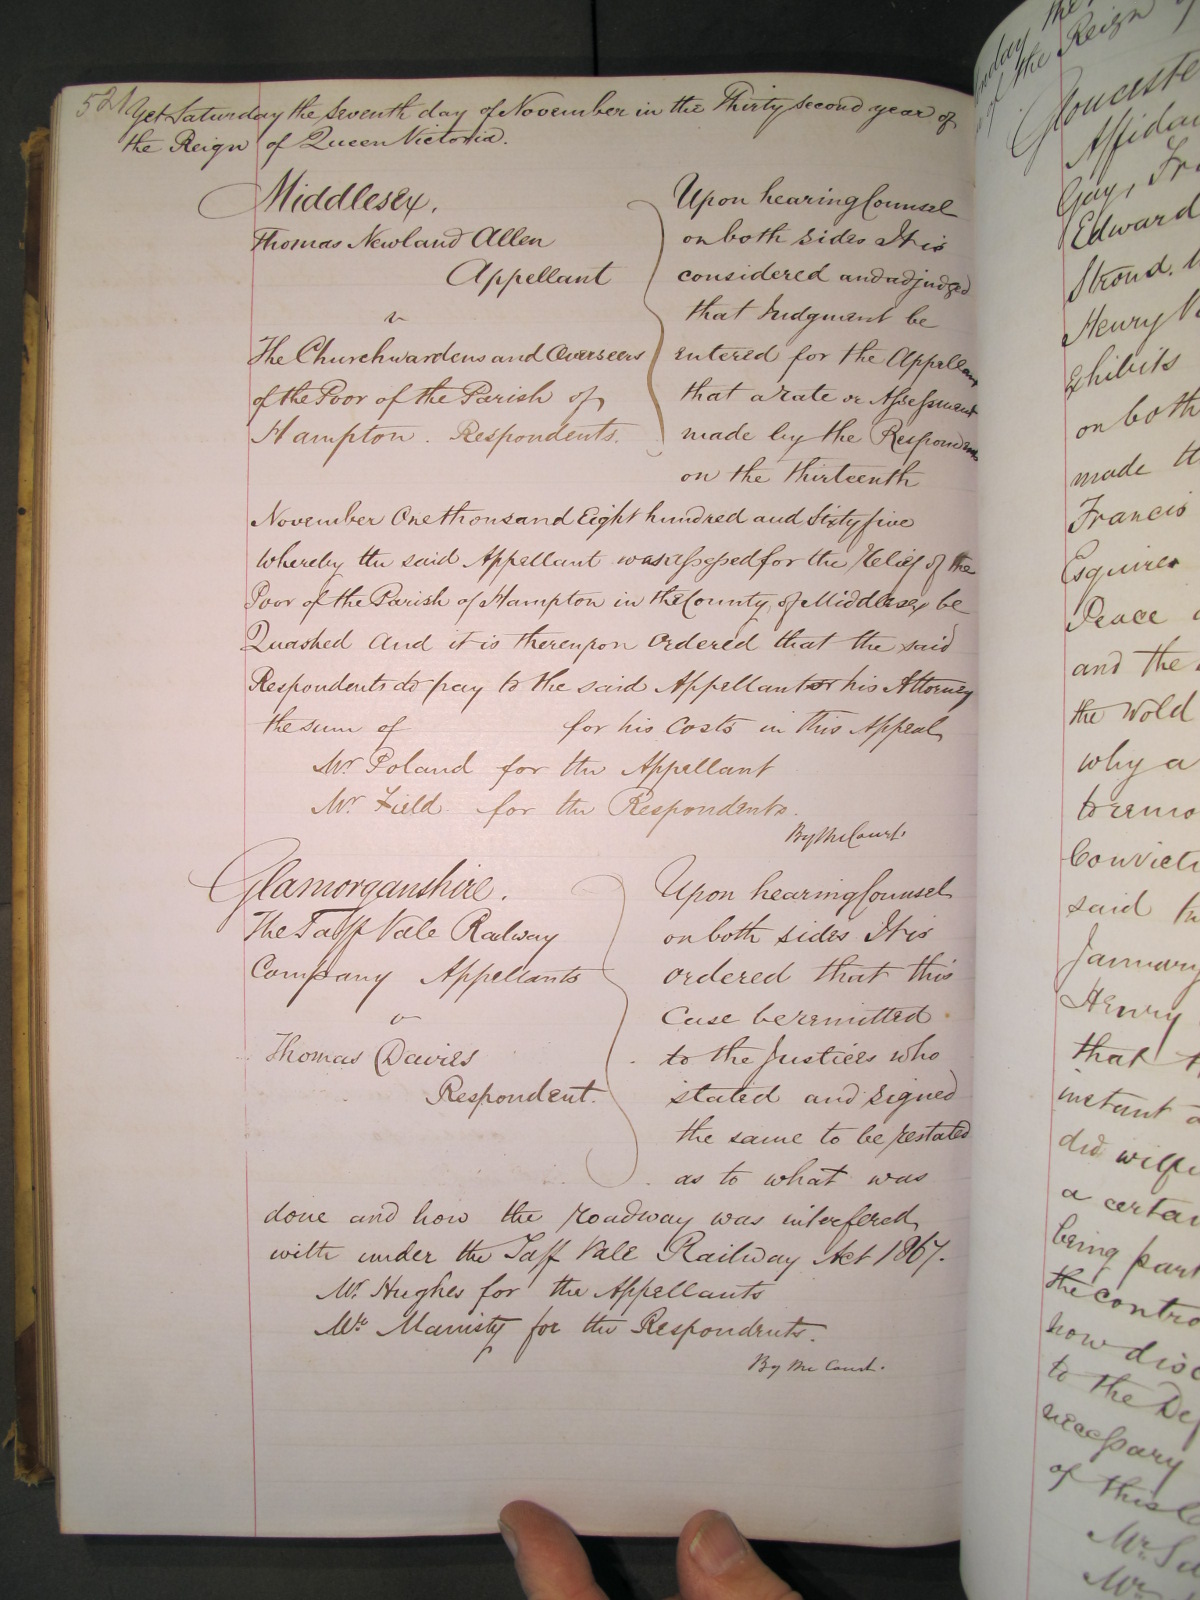 521 Yet Saturday the Seventh day of November in the Thirty second year of
the Reign of Queen Victoria.
Middlesex.
Thomas Newland Allen
Appellant
v
The Churchwardens and Overseers
of the Poor of the Parish of
Hampton. Respondents.
Upon hearing Counsel
on both sides It is
considered and adjudged
that Judgment be
entered for the Appellant
that a rate or Assessment
made by the Respondents
on the thirteenth
November One thousand Eight hundred and Sixty five
whereby the said Appellant was assessed for the Relief of the
Poor of the Parish of Hampton in the County of Middlesex be
Quashed And it is thereupon Ordered that the said
Respondents do pay to the said Appellant or his Attorney
the sum of for his Costs in this Appeal
Mr Poland for the Appellant
Mr Field for the Respondents.
By the Court.
Glamorganshire.
The Taff Vale Railway
Company Appellants
v
Thomas Davies
Respondent.
Upon hearing Counsel
on both sides It is
ordered that this
Case be remitted
to the Justices who
stated and signed
the same to be restated
as to what was
done and how the roadway was interfered
with under the Taff Vale Railway Act 1867.
Mr Hughes for the Appellants
Mr Manisty for the Respondents.
By the Court.
the Reign
Gloucester
Affidav
Guy, Fra
Edward
Stroud.
Henry
Exhibits
on both
made th
Francis
Esquires
Peace
and the
the Wold
why a
to remo
Convicti
said
January
Henry
that t
instant a
did wilfu
a certai
being part
the contro
how disc
to the De
necessary
of this C
Mr
Mr